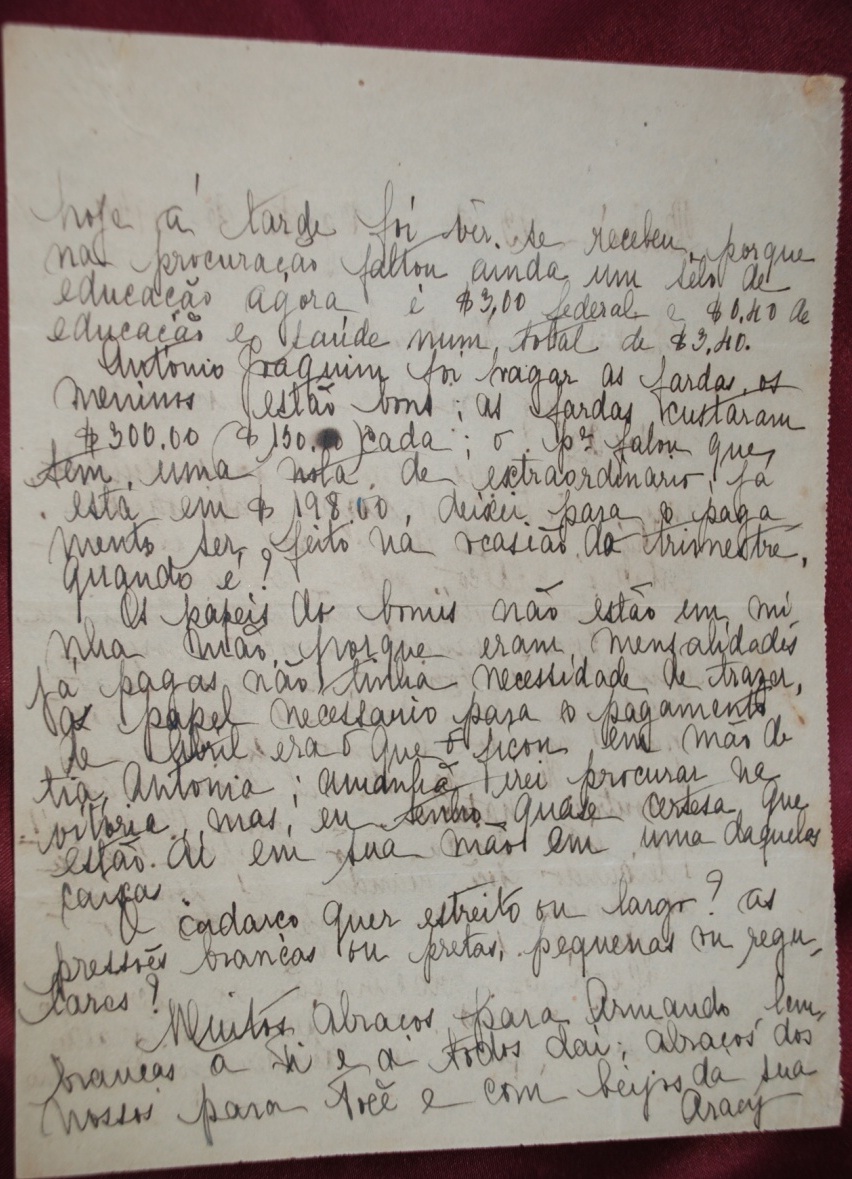 hoje á tarde foi vêr se recebeu, porque
na procuração faltou ainda um sêlo de
educação agora é $3,00 federal e $0,40 de
educação e saúde num total de $3,40.
Antonio Joaquim foi pagar as fardas, os
meninos estão bons; as fardas custaram
$300.00 ($150. cada; o pe falou que,
tem, uma nota de extraordinario, já
está em $198.00, deixei para o paga
mento ser feito na ocasião da trimestre,
quando é?
Os papeis do bonus não estão em mi
nha mão, porque eram mensalidades
já pagas não tinha necessidade de trazer,
papel necessario para o pagamento
de Abril era o que ficou em mão de
tia Antonia; amanhã irei procurar na
vitória, mas, eu tenho quase certesa que
estão. ai em sua mão em uma daquelas
caixas.
O cadarço quer estreito ou largo? as
pressões brancas ou pretas, pequenas ou regu-
lares?
Muitos abraços para Armando, lem-
branças a Fi e a todos dai; abraços dos
nossos para você e com beijos da sua
Aracy